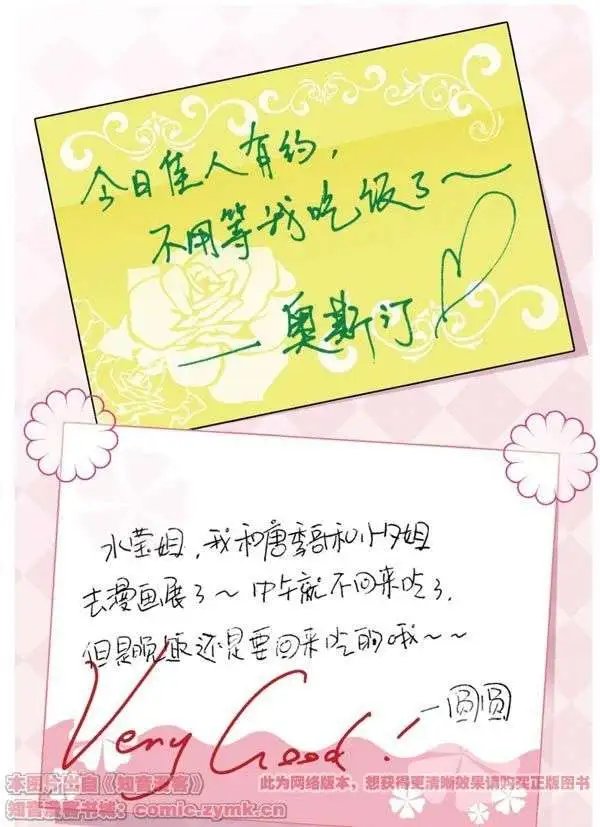 今日佳人有约，
不用等我吃饭了～
——奥斯汀
水莹姐，我和唐李哥和小夕姐
去漫画展了～中午就不回来吃了，
但是晚饭还是要回来吃的哦～～
—圆圆
Very Good！
本图片出自《知音漫客》
知音漫客书城：comic.zymk.cn
此为网络版本，想获得更清晰效果请购买正版图书